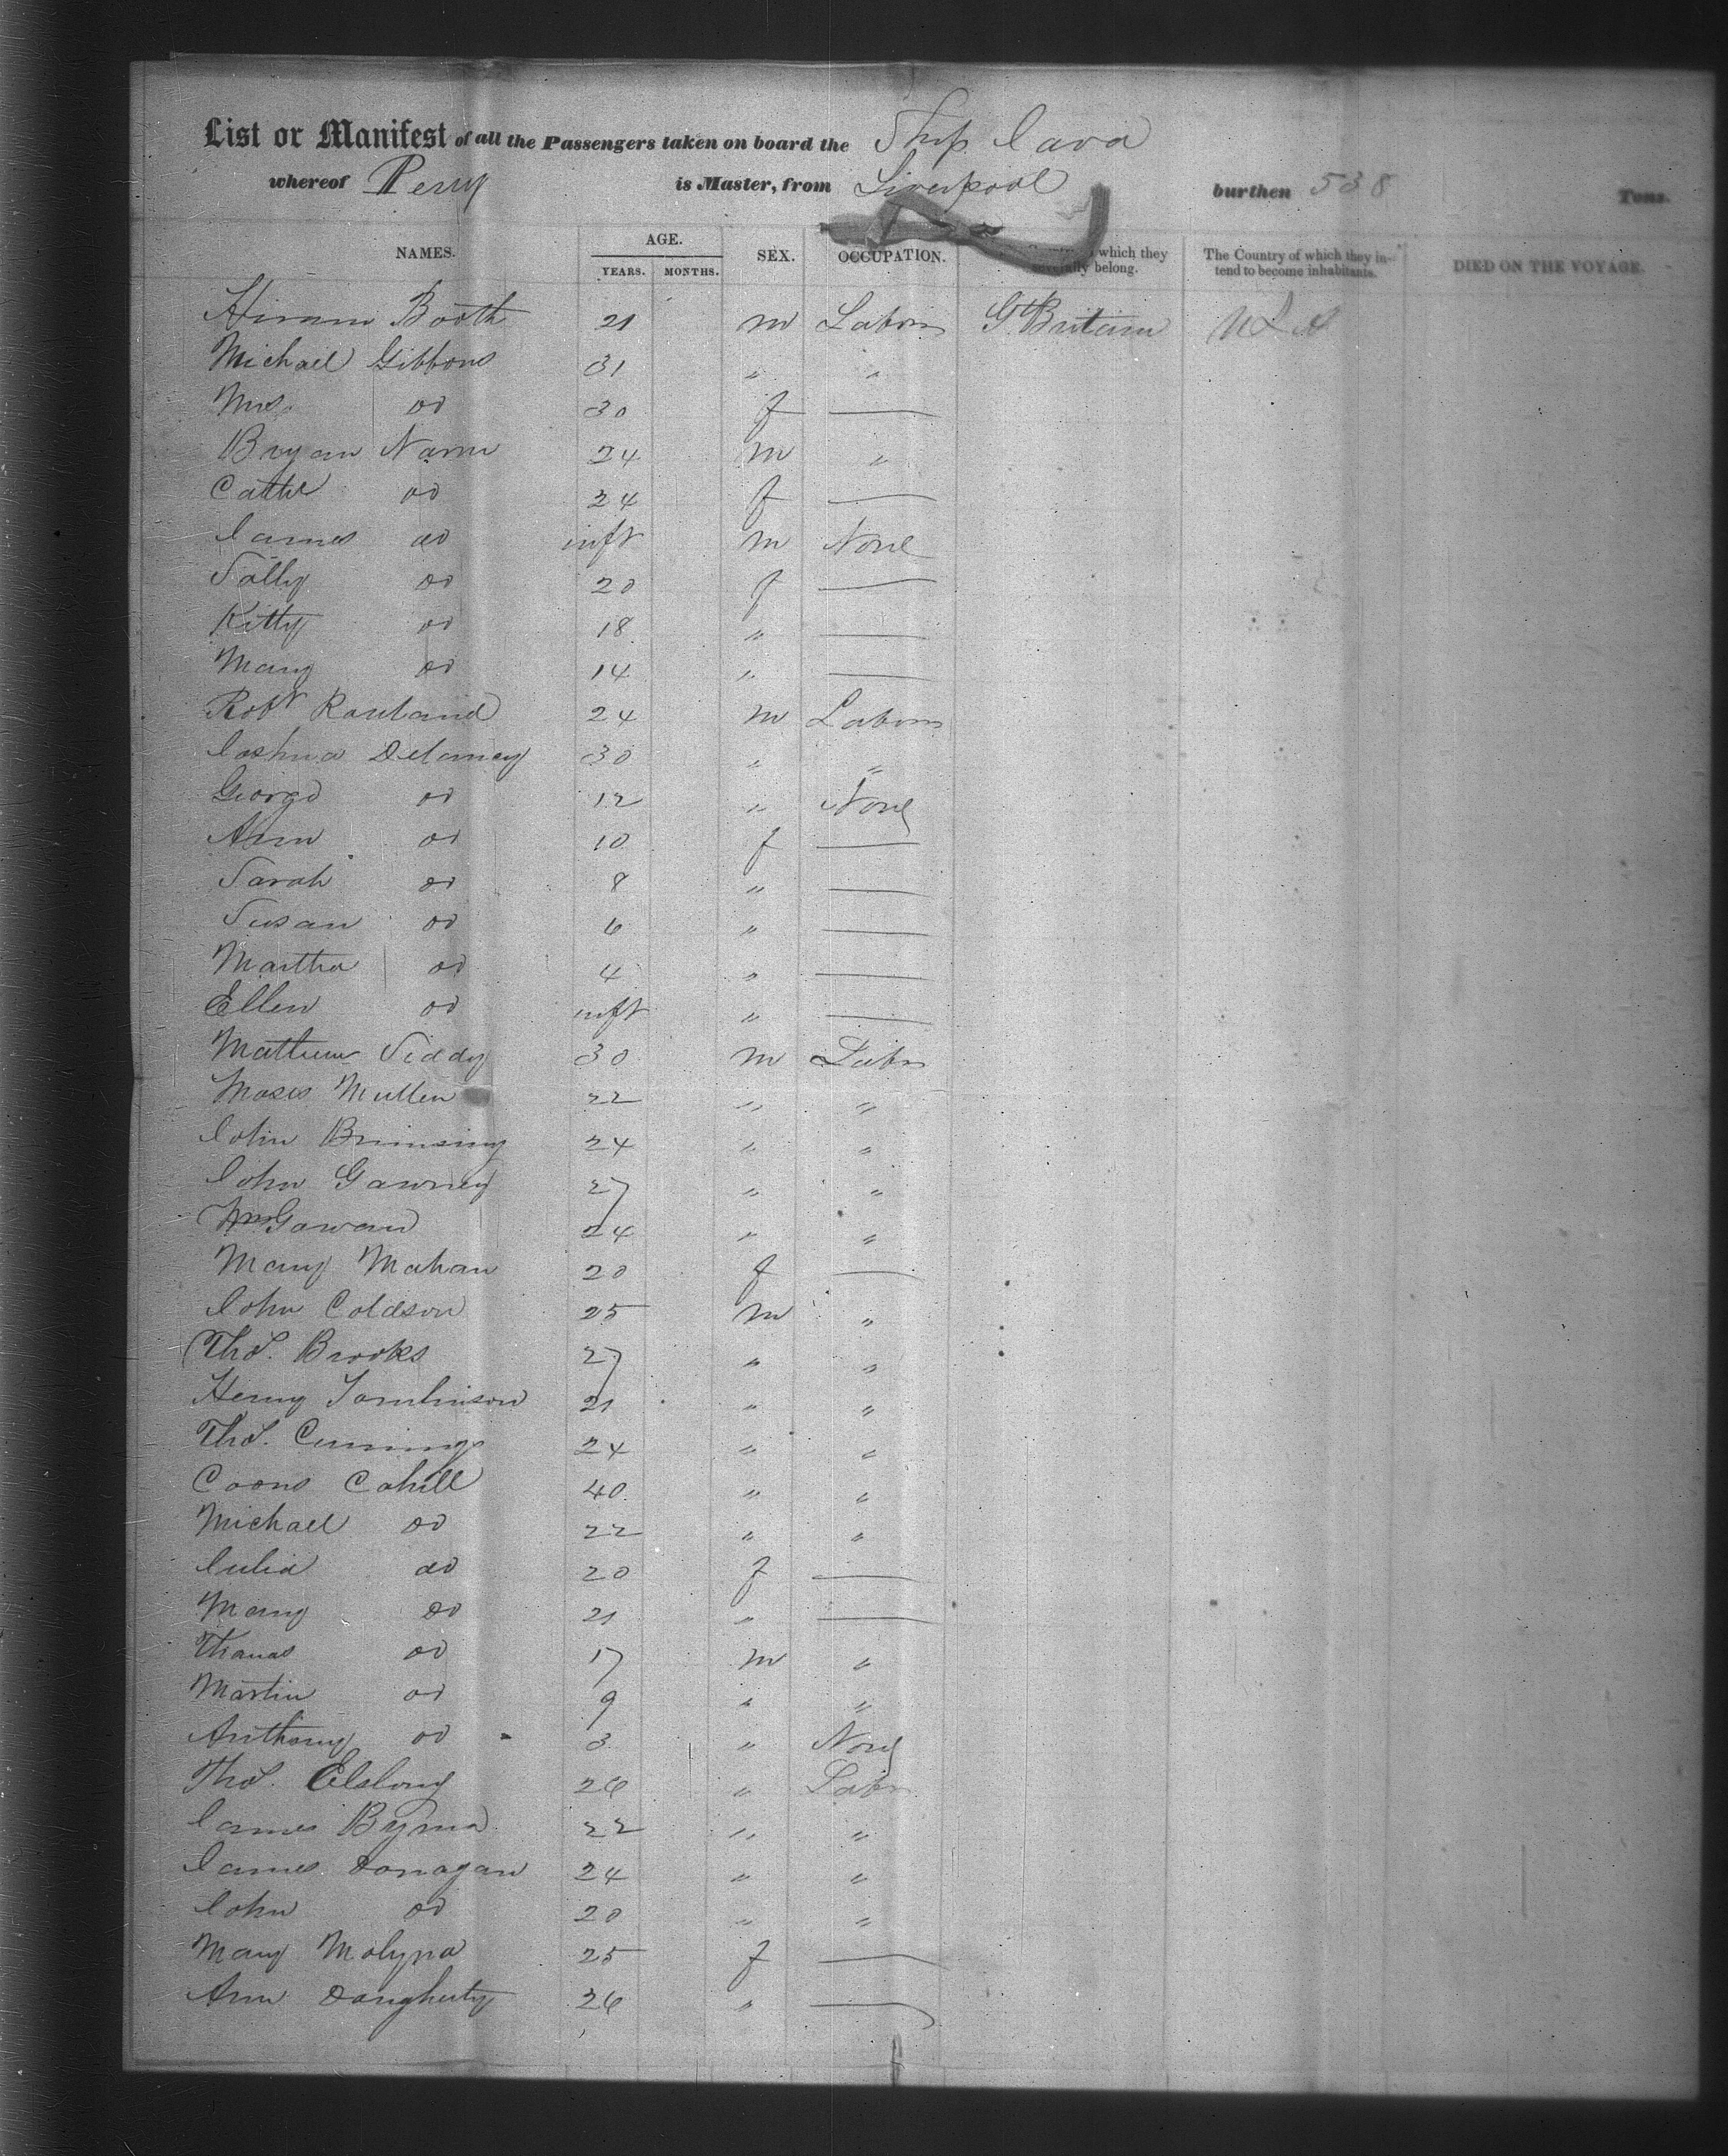 List or Manifest of all the Passengers taken on board the Ship Java
whereof Perry is Master, from Liverpool burthen 538 Tons.
NAMES. AGE. YEARS. MONTHS. SEX. OCCUPATION. which they severally belong. The Country of which they intend to become inhabitants. DIED ON THE VOYAGE.
Hiram Booth 21 m Labors Gt Britain U S A
Michael Gibbons 31 " "
Mrs. do 30 f —
Bryan 24 m "
Cathe do 24 f —
James do inft m None
Sally do 20 f —
Kitty do 18 " —
Mary do 14 " —
Robt Rowland 24 m Labors
Joshua Delaney 30 " "
George do 12 " None
Ann do 10 f —
Sarah do 8 " —
Susan do 6 " —
Martha do 4 " —
Ellen do inft " —
Mathew 30 m Labr
Moses Mullen 22 " "
John 24 " "
John Gawney 27 " "
Wm Gowan 24 " "
Mary Mahan 20 f —
John Coldson 25 m "
Thos. Brooks 27 " "
Henry Tomlinson 21 " "
Thos. Cummings 24 " "
Cahill 40 " "
Michael do 22 " "
Julia do 20 f —
Mary do 21 " —
Thomas do 17 m "
Martin do 9 " "
Anthony do 3 " None
Thos. 26 " Labr
James Byrne 22 " "
James Donagan 24 " "
John do 20 " "
Mary 25 f —
Ann Daugherty 26 " —